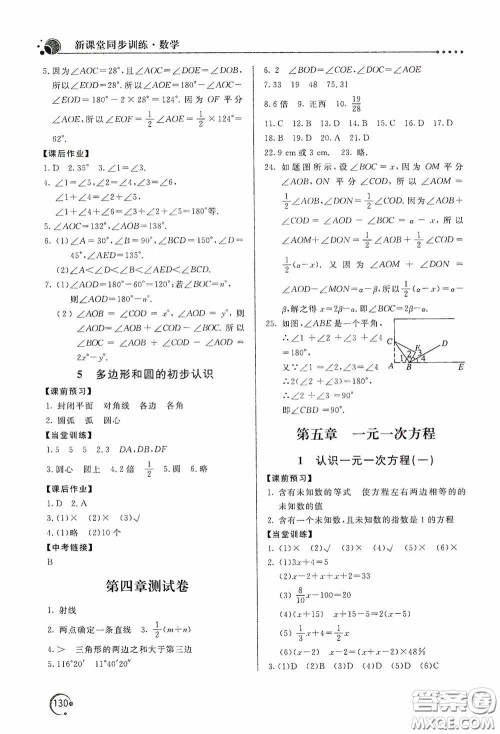 新课堂同步训练·数学
5.因为∠AOC=28°,且∠AOC=∠DOE=∠DOB,
所以∠EOD=28°.所以∠AOE=180°-∠AOC-
∠EOD=180°-2×28°=124°.因为OF平分
∠AOE,所以∠EOF=1/2∠AOE=1/2×124°=
62°.
【课后作业】
1.D 2.35° 3.∠1=∠2
4.∠1=∠5,∠2=∠4,∠3=∠6
∠1+∠6=∠3+∠5=180°等.
5.∠AOC=132°,∠AOB=138°.
6.(1)∠A=30°,∠B=90°,∠BCD=150°,∠D=
45°,∠AED=135°.
(2)∠A<∠D<∠B<∠AED<∠BCD.
7.(1)∠AOD=180°-60°=120°;若∠BOC=n°,
则∠AOD=180°-n°.
(2)∠AOB=∠COD=x°,∠AOD=y°,则
∠AOD=∠AOB+∠COD-∠BOC.所以
∠BOC=∠AOB+∠COD-∠AOD=
2x°-y°.
5 多边形和圆的初步认识
【课前预习】
1.封闭平面 对角线 各边 各角
2.圆 圆弧 弧 圆心
【当堂训练】
1.5 5 5 2.3 DA,DB,DF
3.圆心 圆上 4.2倍 1/2 5.略
【课后作业】
1.D 2.A
3.(1)× (2)× (3)× (4)×
4.(1)略 (2)10个
【中考链接】
B
第四章测试卷
1.射线
2.两点确定一条直线 3.1/2(m+n)
4.> 三角形的两边之和大于第三边
5.116°20′ 11°40′20″
6.2 ∠BOD=∠COE,∠DOE=∠BOC
7.33 19 48 75.31
8.6倍 9.正西 10.19/28
11.C 12.B 13.D 14.D 15.C 16.C
17.B 18.B 19.D 20.A 21.D
22.9 cm或3 cm. 23.略
24.如题图所示,设∠BOC=x,因为OM平分
∠AOB,ON平分∠COD,所以∠AOM=
1/2∠AOB,∠DON=1/2∠COD.因为∠AOB+
∠COD=∠AOD-∠BOC=α-x,所以
∠AOM+∠DON=1/2∠AOB+1/2∠COD=
1/2(α-x).又因为∠AOM+∠DON=
∠AOD-∠MON=α-β,所以1/2(α-x)=α-
β,解之得x=2β-α.即∠BOC=2β-α.
25.如图,∠ABE是一个平角,
∴∠1+∠2+∠3+∠4
=180°,
又∵∠1=∠2,∠3=∠4
∴2(∠2+∠3)=180°,
∴∠2+∠3=90°
即∠CBD=90°.
C
F
D
A
B
E
1
2
3
4
第五章 一元一次方程
1 认识一元一次方程(一)
【课前预习】
1.含有未知数的等式 使方程左右两边相等的
2.含有一个未知数,且未知数的指数是1的方程
【当堂训练】
1.(1)× (2)√ (3)√ (4)× (5)×
2.(1)3x+4=5
(2)(x-2)+x+(x+2)=33
(3)8/10x-100=20
(4)x(x-10)=200
(5)1/3x+4=1/2x
(6)x+(x-2)=(x+2+x)×48%
3.(1)D (2)B (3)D (4)C (5)B (6)C
130
答案圈